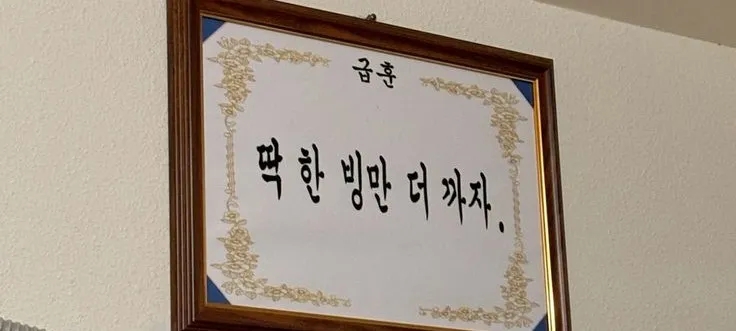 급훈
딱 한 빙만 더 까자.